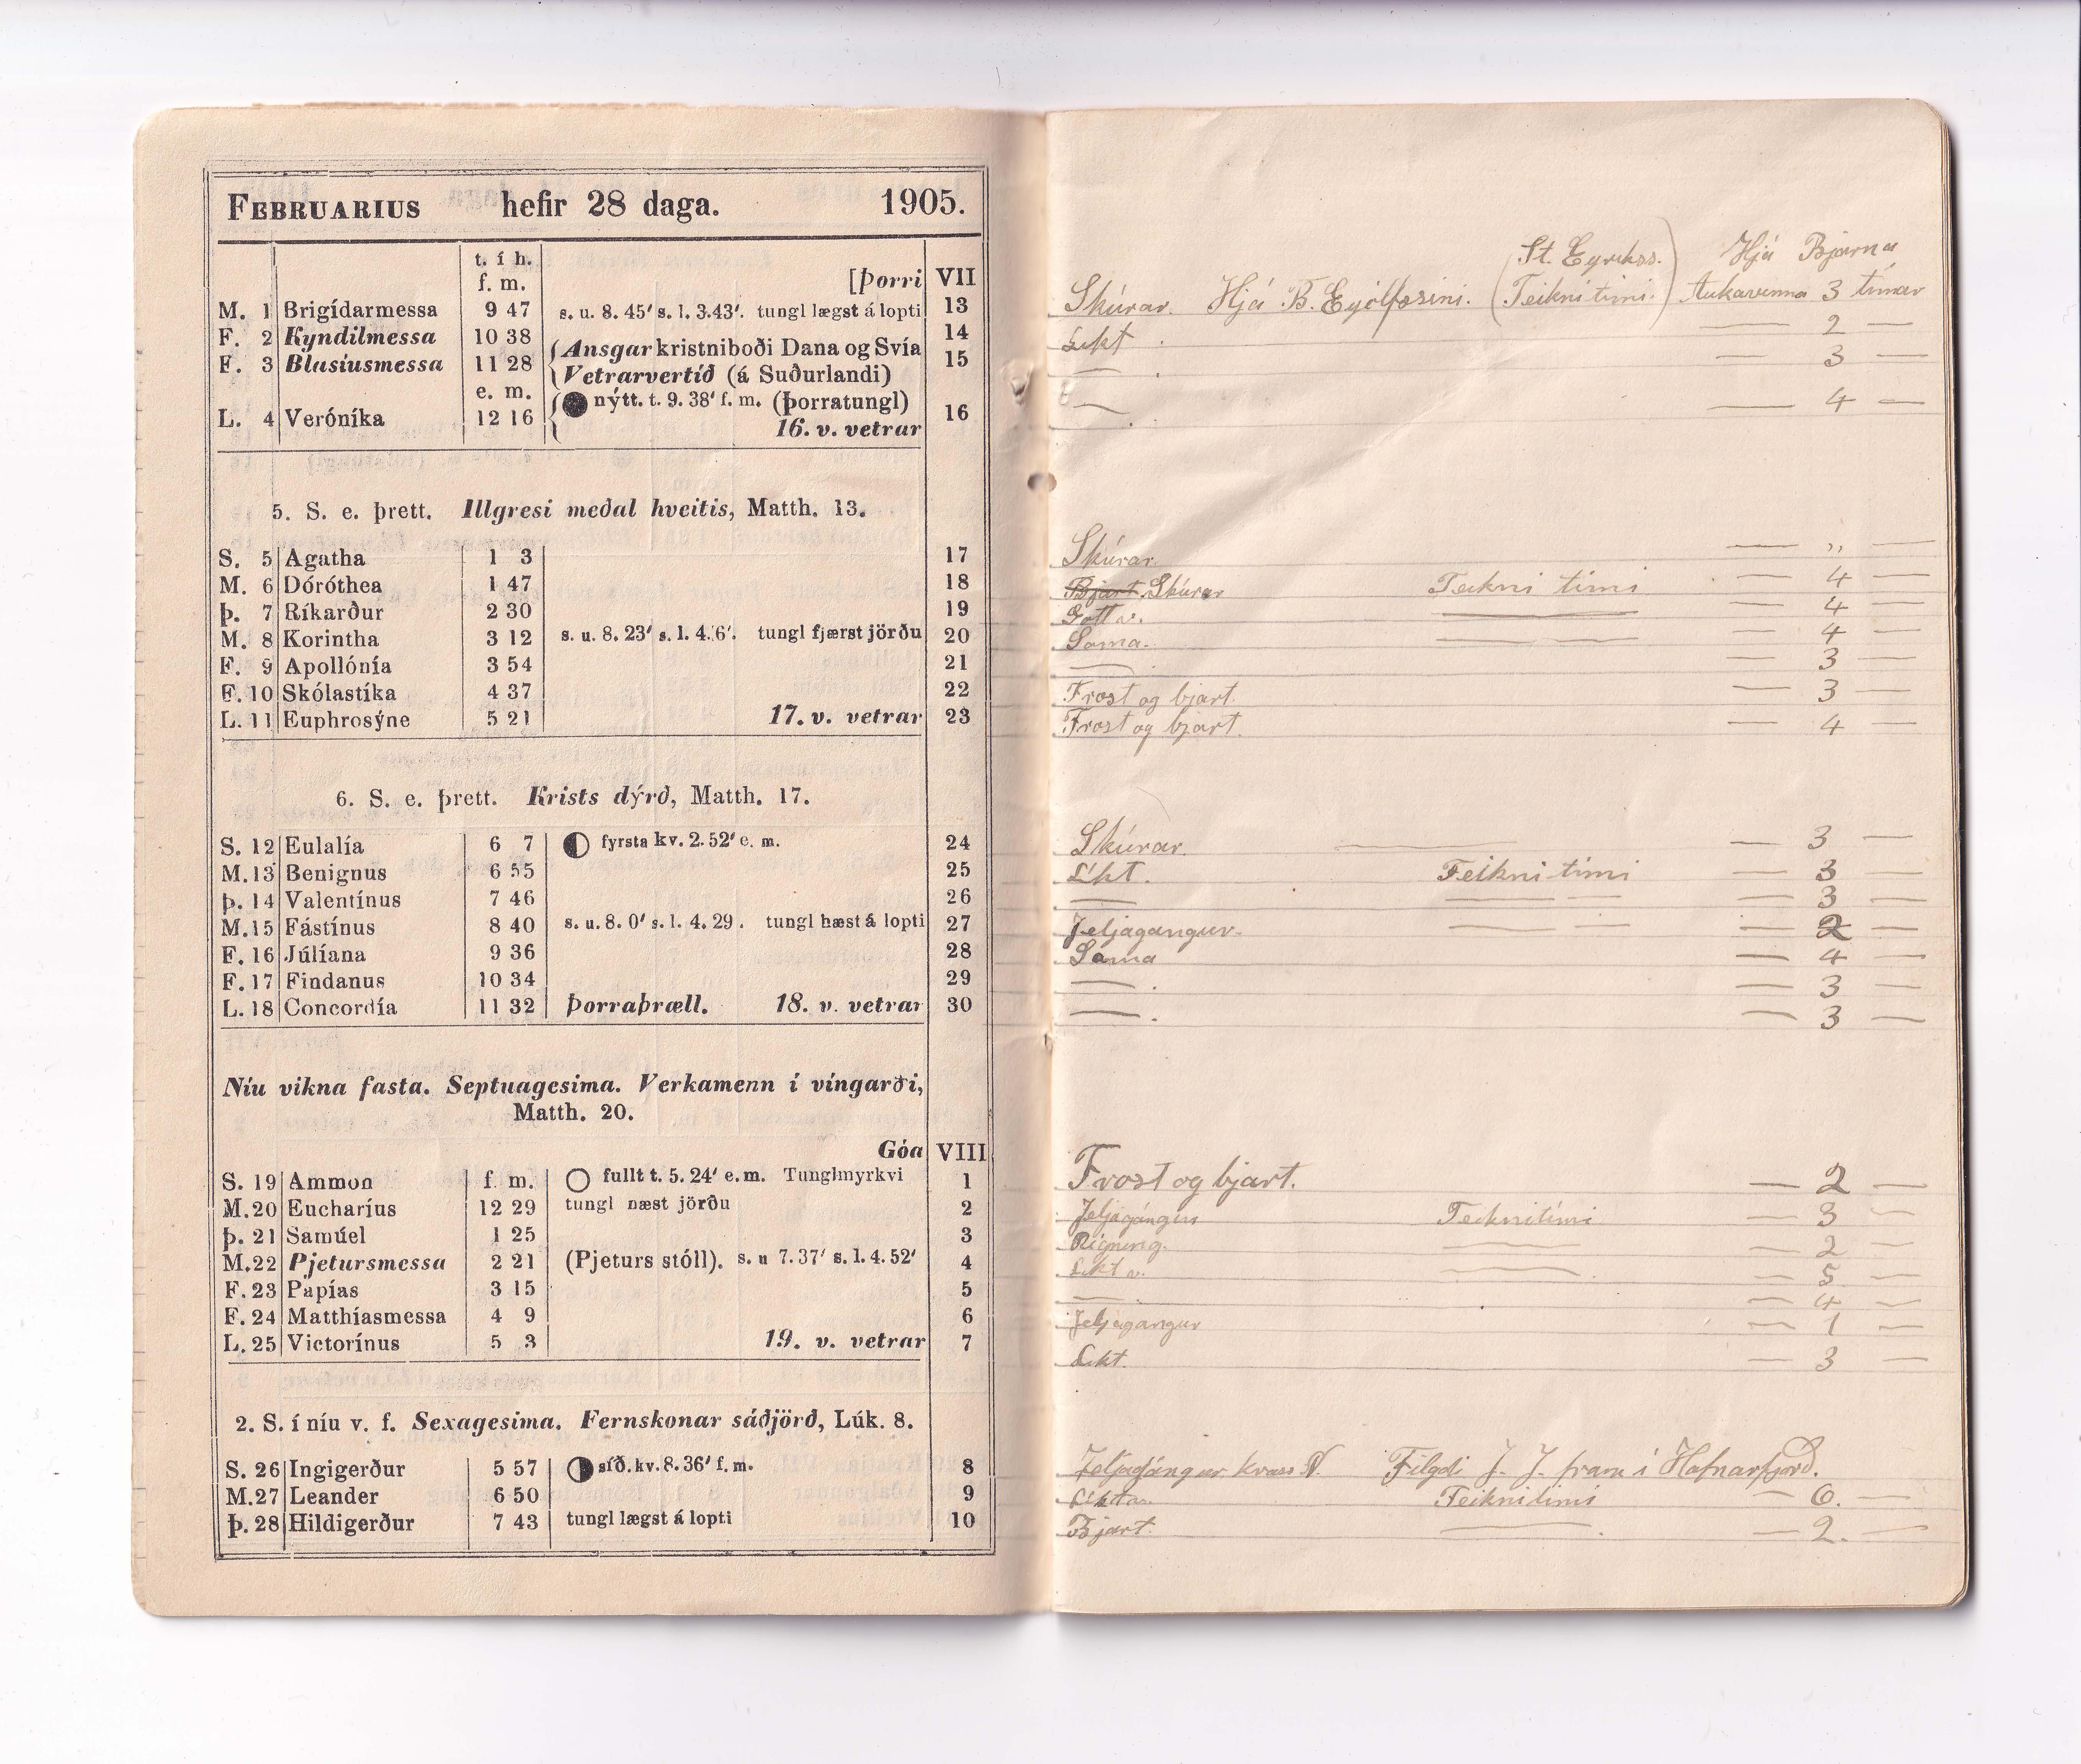 FEBRUARIUS hefir 28 daga. 1905.
t. í h.
f. m. [Þorri VII
M. 1 Brigídarmessa 9 47 s. u. 8. 45' s. l. 3.43'. tungl lægst á lopti 13
F. 2 Kyndilmessa 10 38 14
F. 3 Blasíusmessa 11 28 Ansgar kristniboði Dana og Svía 15
Vetrarvertíð (á Suðurlandi)
e. m. nýtt. t. 9. 38' f. m. (Þorratungl)
L. 4 Verónika 12 16 16
16. v. vetrar
5. S. e. þrett. Illgresi meðal hveitis, Matth. 13.
S. 5 Agatha 1 3 17
M. 6 Dóróthea 1 47 18
Þ. 7 Ríkarður 2 30 19
M. 8 Korintha 3 12 s. u. 8. 23' s. l. 4. 6'. tungl fjærst jörðu 20
F. 9 Apollónía 3 54 21
F. 10 Skólastíka 4 37 22
L. 11 Euphrosýne 5 21 17. v. vetrar 23
6. S. e. þrett. Krists dýrð, Matth. 17.
S. 12 Eulalía 6 7 fyrsta kv. 2. 52' e. m. 24
M. 13 Benignus 6 55 25
Þ. 14 Valentínus 7 46 26
M. 15 Fástínus 8 40 s. u. 8. 0' s. l. 4. 29. tungl hæst á lopti 27
F. 16 Júlíana 9 36 28
F. 17 Findanus 10 34 29
L. 18 Concordía 11 32 Þorraþræll. 18. v. vetrar 30
Níu vikna fasta. Septuagesima. Verkamenn í víngarði,
Matth. 20.
Góa VIII
S. 19 Ammon f. m. fullt t. 5. 24' e. m. Tunglmyrkvi 1
M. 20 Eucharíus 12 29 tungl næst jörðu 2
Þ. 21 Samúel 1 25 3
M. 22 Pjetursmessa 2 21 (Pjeturs stóll). s. u 7. 37' s. l. 4. 52' 4
F. 23 Papías 3 15 5
F. 24 Matthíasmessa 4 9 6
L. 25 Victorínus 5 3 19. v. vetrar 7
2. S. í níu v. f. Sexagesima. Fernskonar sáðjörð, Lúk. 8.
S. 26 Ingigerður 5 57 síð. kv. 8. 36' f. m. 8
M. 27 Leander 6 50 9
Þ. 28 Hildigerður 7 43 tungl lægst á lopti 10
(St. Eyrikss.) Hjá Bjarna
Skúrar. Hjá B. Eyólfssini. (Teikni timi.) Aukavinna 3 tímar
Likt. — 2 —
— . — 3 —
— . — 4 —
Skúrar. — „ —
Bjart. Skúrar Teikni timi — 4 —
Gott v. — — 4 —
Sama. — — 4 —
— . — 3 —
Frost og bjart. — 3 —
Frost og bjart. — 4 —
Skúrar. — — 3 —
Líkt. Teikni timi — 3 —
— — — — 3 —
Jeljagangur. — — — 2 —
Sama — 4 —
— . — 3 —
— . — 3 —
Frost og bjart. — 2 —
Jeljagángur Teiknitimi — 3 —
Rigning. — — 2 —
Likt v. — — 5 —
— . — 4 —
Jeljagangur — 1 —
Likt. — 3 —
Jeljagángur Filgdi J. J. fram i Hafnarfjörð.
Teiknitimi — 6. —
Bjart. — . — 2. —